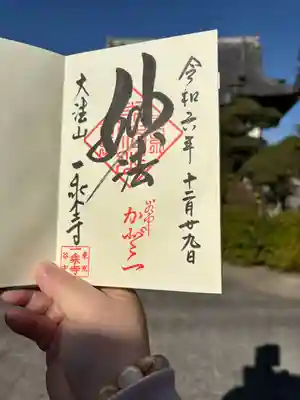 令和六年 十二月廿九日
妙法
大法山 一乗寺
東京
一乗寺
谷中